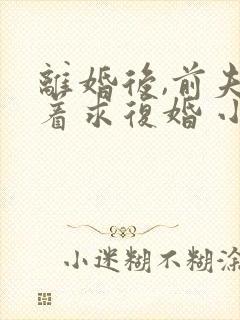 離婚後,前夫
着求復婚 小
小迷糊不糊涂